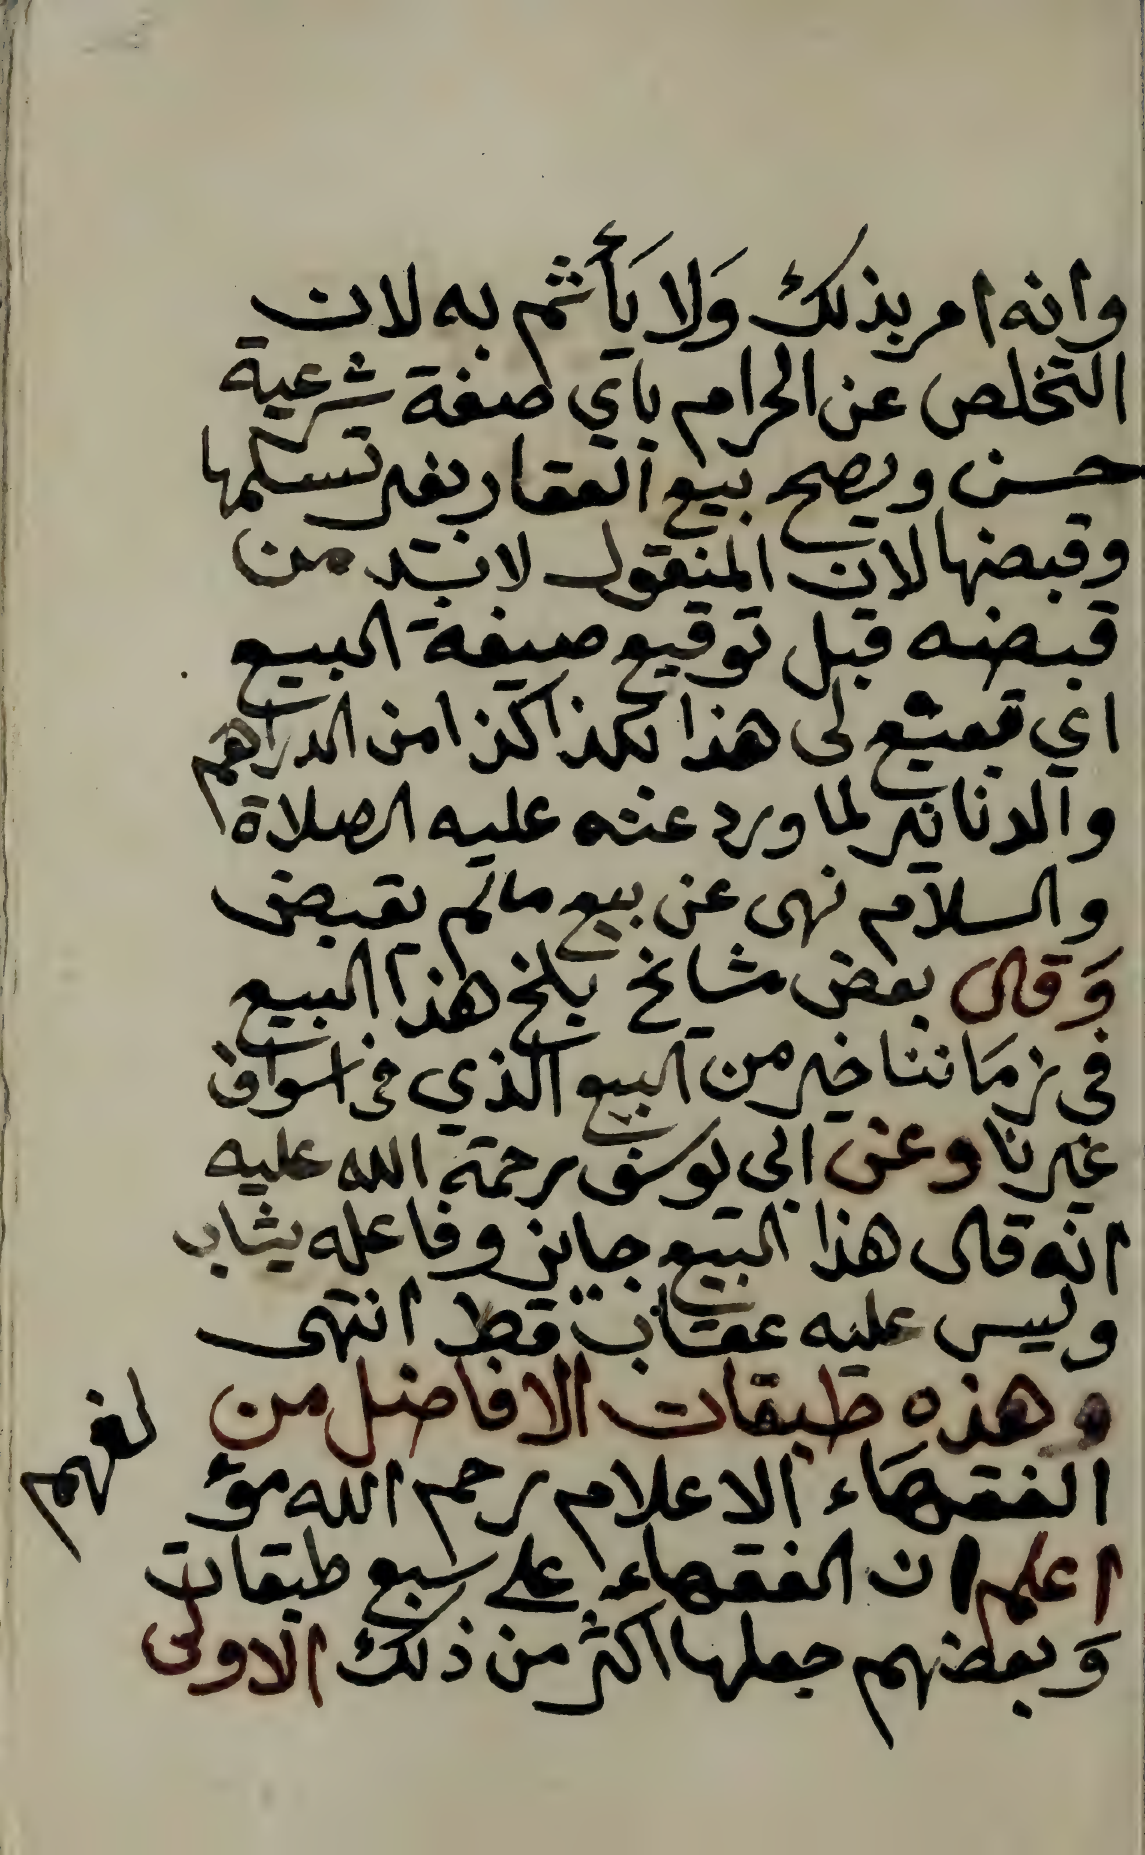 وانه امر بذلك وَلا يَأثم به لان
التخلص عن الحرام بأي صفة شرعية
حسن ويصح بيع العقار بغير تسلمها
وقبضها لان المنقول لابد من
قبضه قبل توقيع صيغة البيع
اي قبعتع لى هذا بكذا كذا من الدراهم
والدنانير لما ورد عنه عليه الصلاة
والسلام نهى عن بيع مالم يقبض
وَقال بعض مشايخ بلخ هذا البيع
في زمَاننا خير من البيع الذي في اسواق
غيرنا وعن ابى يوسف رحمة الله عليه
انه قال هذا البيع جايز وفاعله يثاب
وليس عليه عقاب قط انتهى
وهذه طبقات الافاضل من
الفقهاء الاعلام رحم الله مؤ
لفهم
اعلم ان الفقهاء على سبع طبقات
وَبعضهم جعلها اكثر من ذلك الاولى